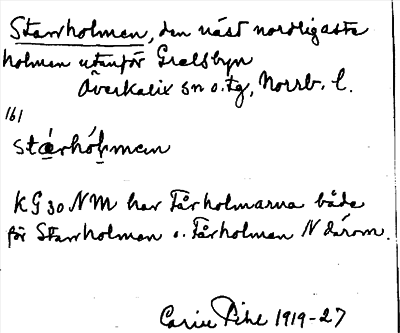 Starrholmen, den näst nordligaste
holmen utanför Grelsbyn
Överkalix sn o. tg, Norrb. l.
161
stǽrhólmen
KG 30 NM har Fårholmarna både
för Starrholmen o. Fårholmen N därom.
Carin Pihl 1919-27